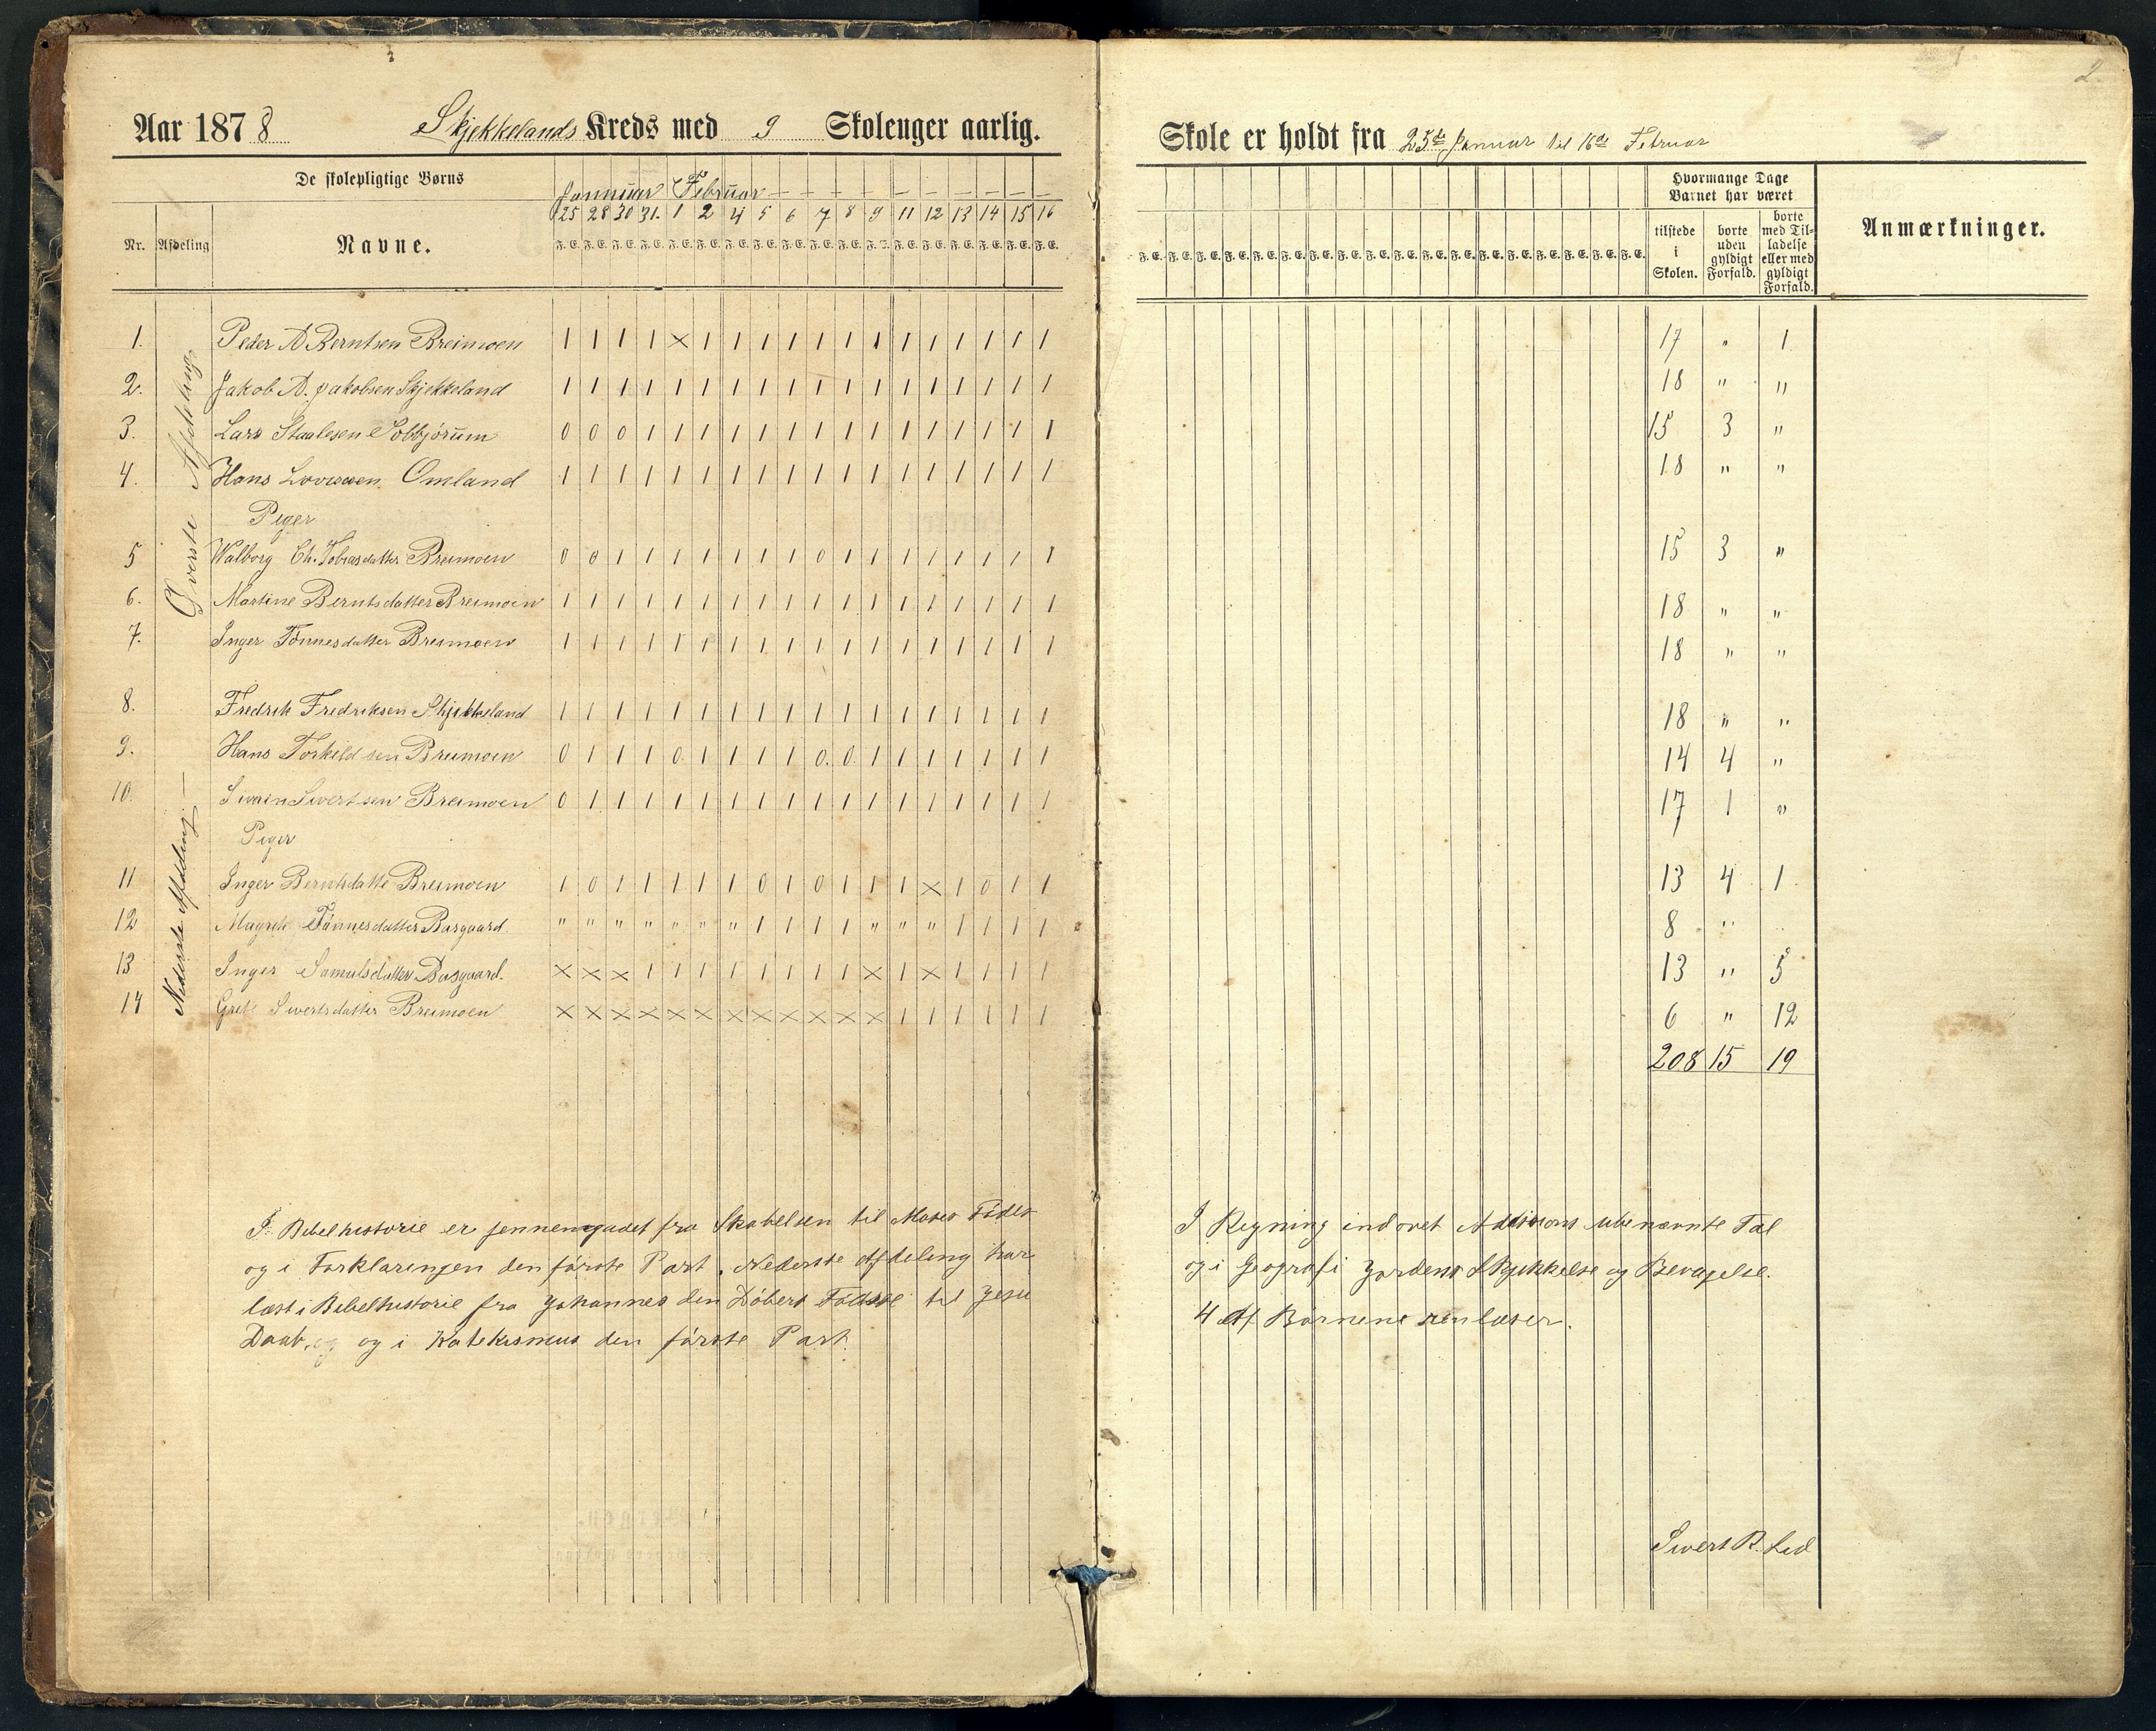 Aar 1878 Skjekkelands Kreds med 9 Skoleuger aarlig.
De skolepligtige Børns
Januar Februar
25 28 30 31. 1 2 4 5 6 7 8 9 11 12 13 14 15 16
Nr. Afdeling Navne. F. E. F. E. F. E. F. E. F. E. F. E. F. E. F. E. F. E. F. E. F. E. F. E. F. E. F. E. F. E. F. E. F. E. F. E.
Øverste Afdeling
1. Peder A Berntsen Breimoen 1 1 1 1 × 1 1 1 1 1 1 1 1 1 1 1 1 1
2. Jakob A. Jakobsen Skjekkeland 1 1 1 1 1 1 1 1 1 1 1 1 1 1 1 1 1 1
3. Lars Staalesen 0 0 0 1 1 1 1 1 1 1 1 1 1 1 1 1 1 1
4. Hans Omland 1 1 1 1 1 1 1 1 1 1 1 1 1 1 1 1 1 1
Piger
5 Walborg Ch. Tobiasdatter Breimoen 0 0 1 1 1 1 1 1 1 0 1 1 1 1 1 1 1 1
6. Martine Berntsdatter Breimoen 1 1 1 1 1 1 1 1 1 1 1 1 1 1 1 1 1 1
7. Inger Tönnesdatter Breimoen 1 1 1 1 1 1 1 1 1 1 1 1 1 1 1 1 1 1
Nederste Afdeling –
8. Fredrik Fredriksen Skjekkeland 1 1 1 1 1 1 1 1 1 1 1 1 1 1 1 1 1 1
9. Hans Torkildsen Breimoen 0 1 1 1 0 1 1 1 1 0. 0. 1 1 1 1 1 1 1
10. Swein Sivertsen Breimoen 0 1 1 1 1 1 1 1 1 1 1 1 1 1 1 1 1 1
Piger
11 Inger Berntsdatte Breimoen 1 0 1 1 1 1 1 0 1 0 1 1 1 × 1 0 1 1
12 Magrete Tönnesdatter Basgaard. " " " " " " " 1 1 1 1 " " " 1 1 1 1
13 Inger Samulsdatter Basgaard. × × × 1 1 1 1 1 1 1 1 × 1 × 1 1 1 1
14 Grete Sivertsdatter Breimoen × × × × × × × × × × × × 1 1 1 1 1 1
I Bibelhistorie er jennemgaaet fra Skabelsen til Moses Födes
og i Forklaringen den förste Part. Nederste Afdeling har
læst i Bibelhistorie fra Johannes den Döbers Födsel til Jesu
Daab, og i Katekismus den förste Part.
2
Skole er holdt fra 25de Januar til 16de Februar
Hvormange Dage
Barnet har været
tilstede i Skolen.
borte uden gyldigt Forfald.
borte med Tilladelse eller med gyldigt Forfald.
Anmærkninger.
F. E. F. E. F. E. F. E. F. E. F. E. F. E. F. E. F. E. F. E. F. E. F. E. F. E. F. E. F. E. F. E. F. E. F. E.
17 " 1
18 " "
15 3 "
18 " "
15 3 "
18 " "
18 " "
18 " "
14 4 "
17 1 "
13 4 1
8 "
13 " 5
6 " 12
208 15 19
I Regning indövet Addisions ubenævnte Tal
og i Geografi Jordens Skjekkelse og Bevægelse.
4 Af Börnene renlæser.
Sivert R. Lid